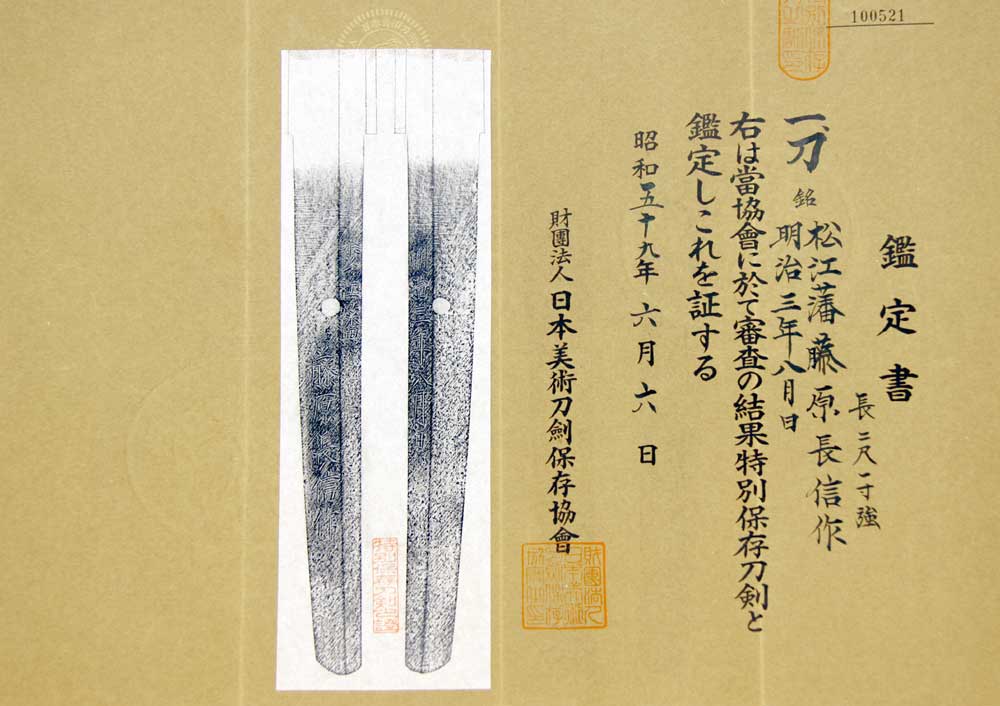 100521
鑑定書
長二尺一寸強
一、刀 銘 松江藩藤原長信作
明治三年八月日
右は當協會に於て審査の結果特別保存刀剣と
鑑定しこれを証する
昭和五十九年六月六日
財團法人日本美術刀劍保存協會